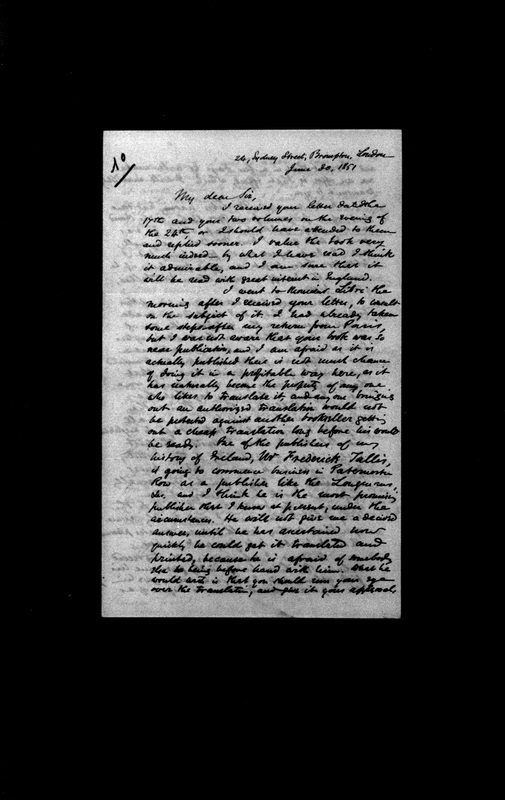 1°/
24, Sydney Street, Brompton, London
June 30, 1851
My dear Sir,
I received your letter dated the
17th and your two volumes on the evening of
the 24th, or I should have attended to them
and replied sooner. I value the book very
much indeed – by what I have read I think
it admirable, and I am sure that it
will be read with great interest in England.
I went to Monsieur Libri the
morning after I received your letter, to consult
on the subject of it. I had already taken
some steps after my return from Paris,
but I was not aware that your book was so
near publication, and I am afraid as it is
actually published there is not much chance
of doing it in a profitable way here, as it
has naturally become the property of any one
who likes to translate it, and any one bringing
out an authorized translation would not
be protected against another bookseller getting
out a cheap translation long before his would
be ready. One of the publishers of my
history of Ireland, Mr Frederick Tallis,
is going to commence business in Paternoster
Row as a publisher like the Longmans,
&c. and I think he is the most promising
publisher that I know at present, under the
circumstances. He will not give me a decided
answer until he has ascertained how
quickly he could get it translated and
printed, because he is afraid of somebody
else being before hand with him. What he
would wish is that you should run your eye
over the translation, and give it your approval,